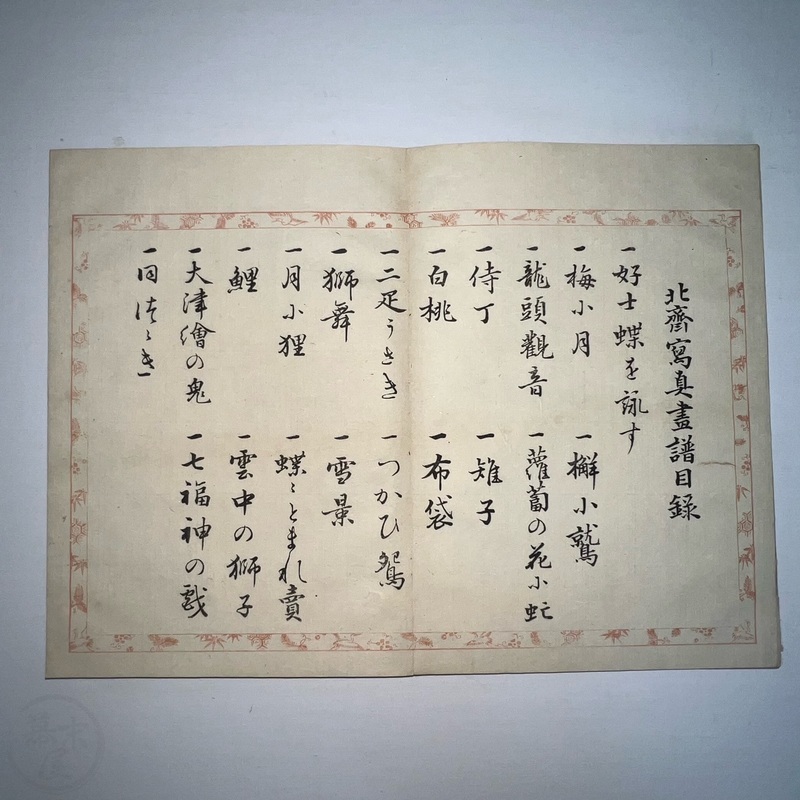 北齊寫真畫譜目録
一好士蝶を詠す
一梅に月 一檞に鷲
一龍頭觀音 一蘿蔔の花に虻
一侍丁 一雉子
一白桃 一布袋
一二足うさき 一つかひ鴛
一獅舞 一雪景
一月に狸 一蝶〻とまれ賣
一鯉 一雲中の獅子
一大津繪の鬼 一七福神の戯
一同つゝき